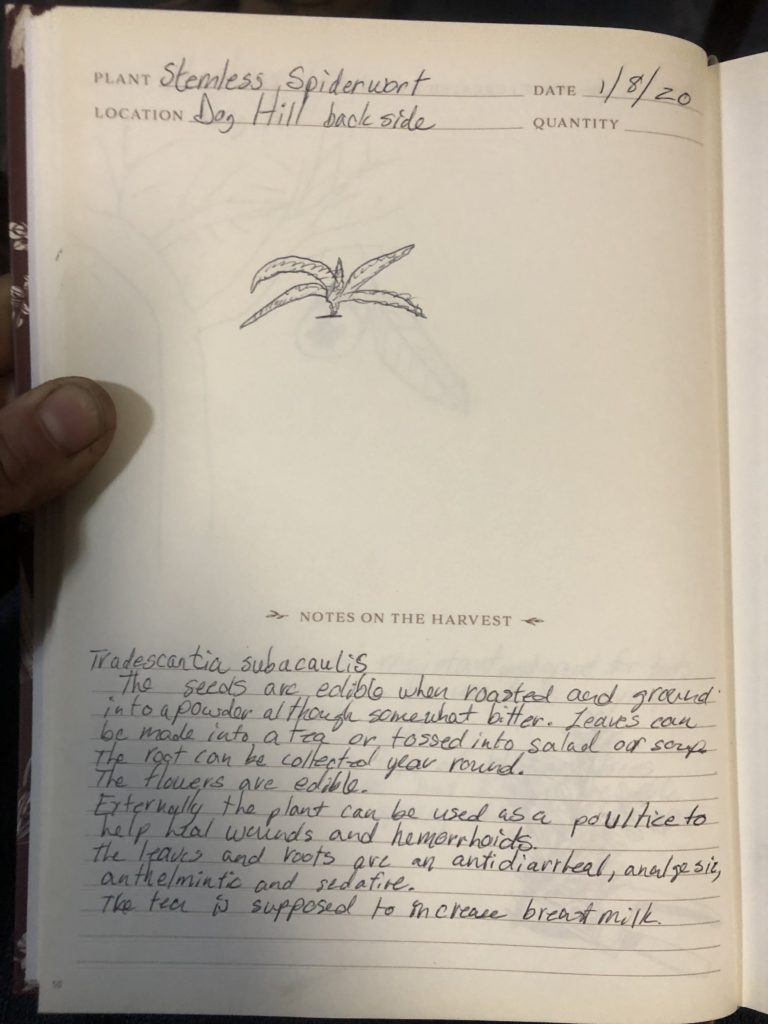 PLANT Stemless Spiderwort DATE 1/8/20
LOCATION Dog Hill back side QUANTITY
NOTES ON THE HARVEST
Tradescantia subacaulis
The seeds are edible when roasted and ground
into a powder although somewhat bitter. Leaves can
be made into a tea or tossed into salad our soup
The root can be collected year round.
The flowers are edible.
Externally the plant can be used as a poultice to
help heal wounds and hemorrhoids.
The leaves and roots are an antidiarrheal, analgesic,
anthelmintic and sedative.
The tea is supposed to increase breast milk.